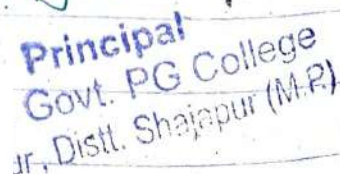 Principal
Govt. PG College
ur, Distt. Shajapur (M.P.)